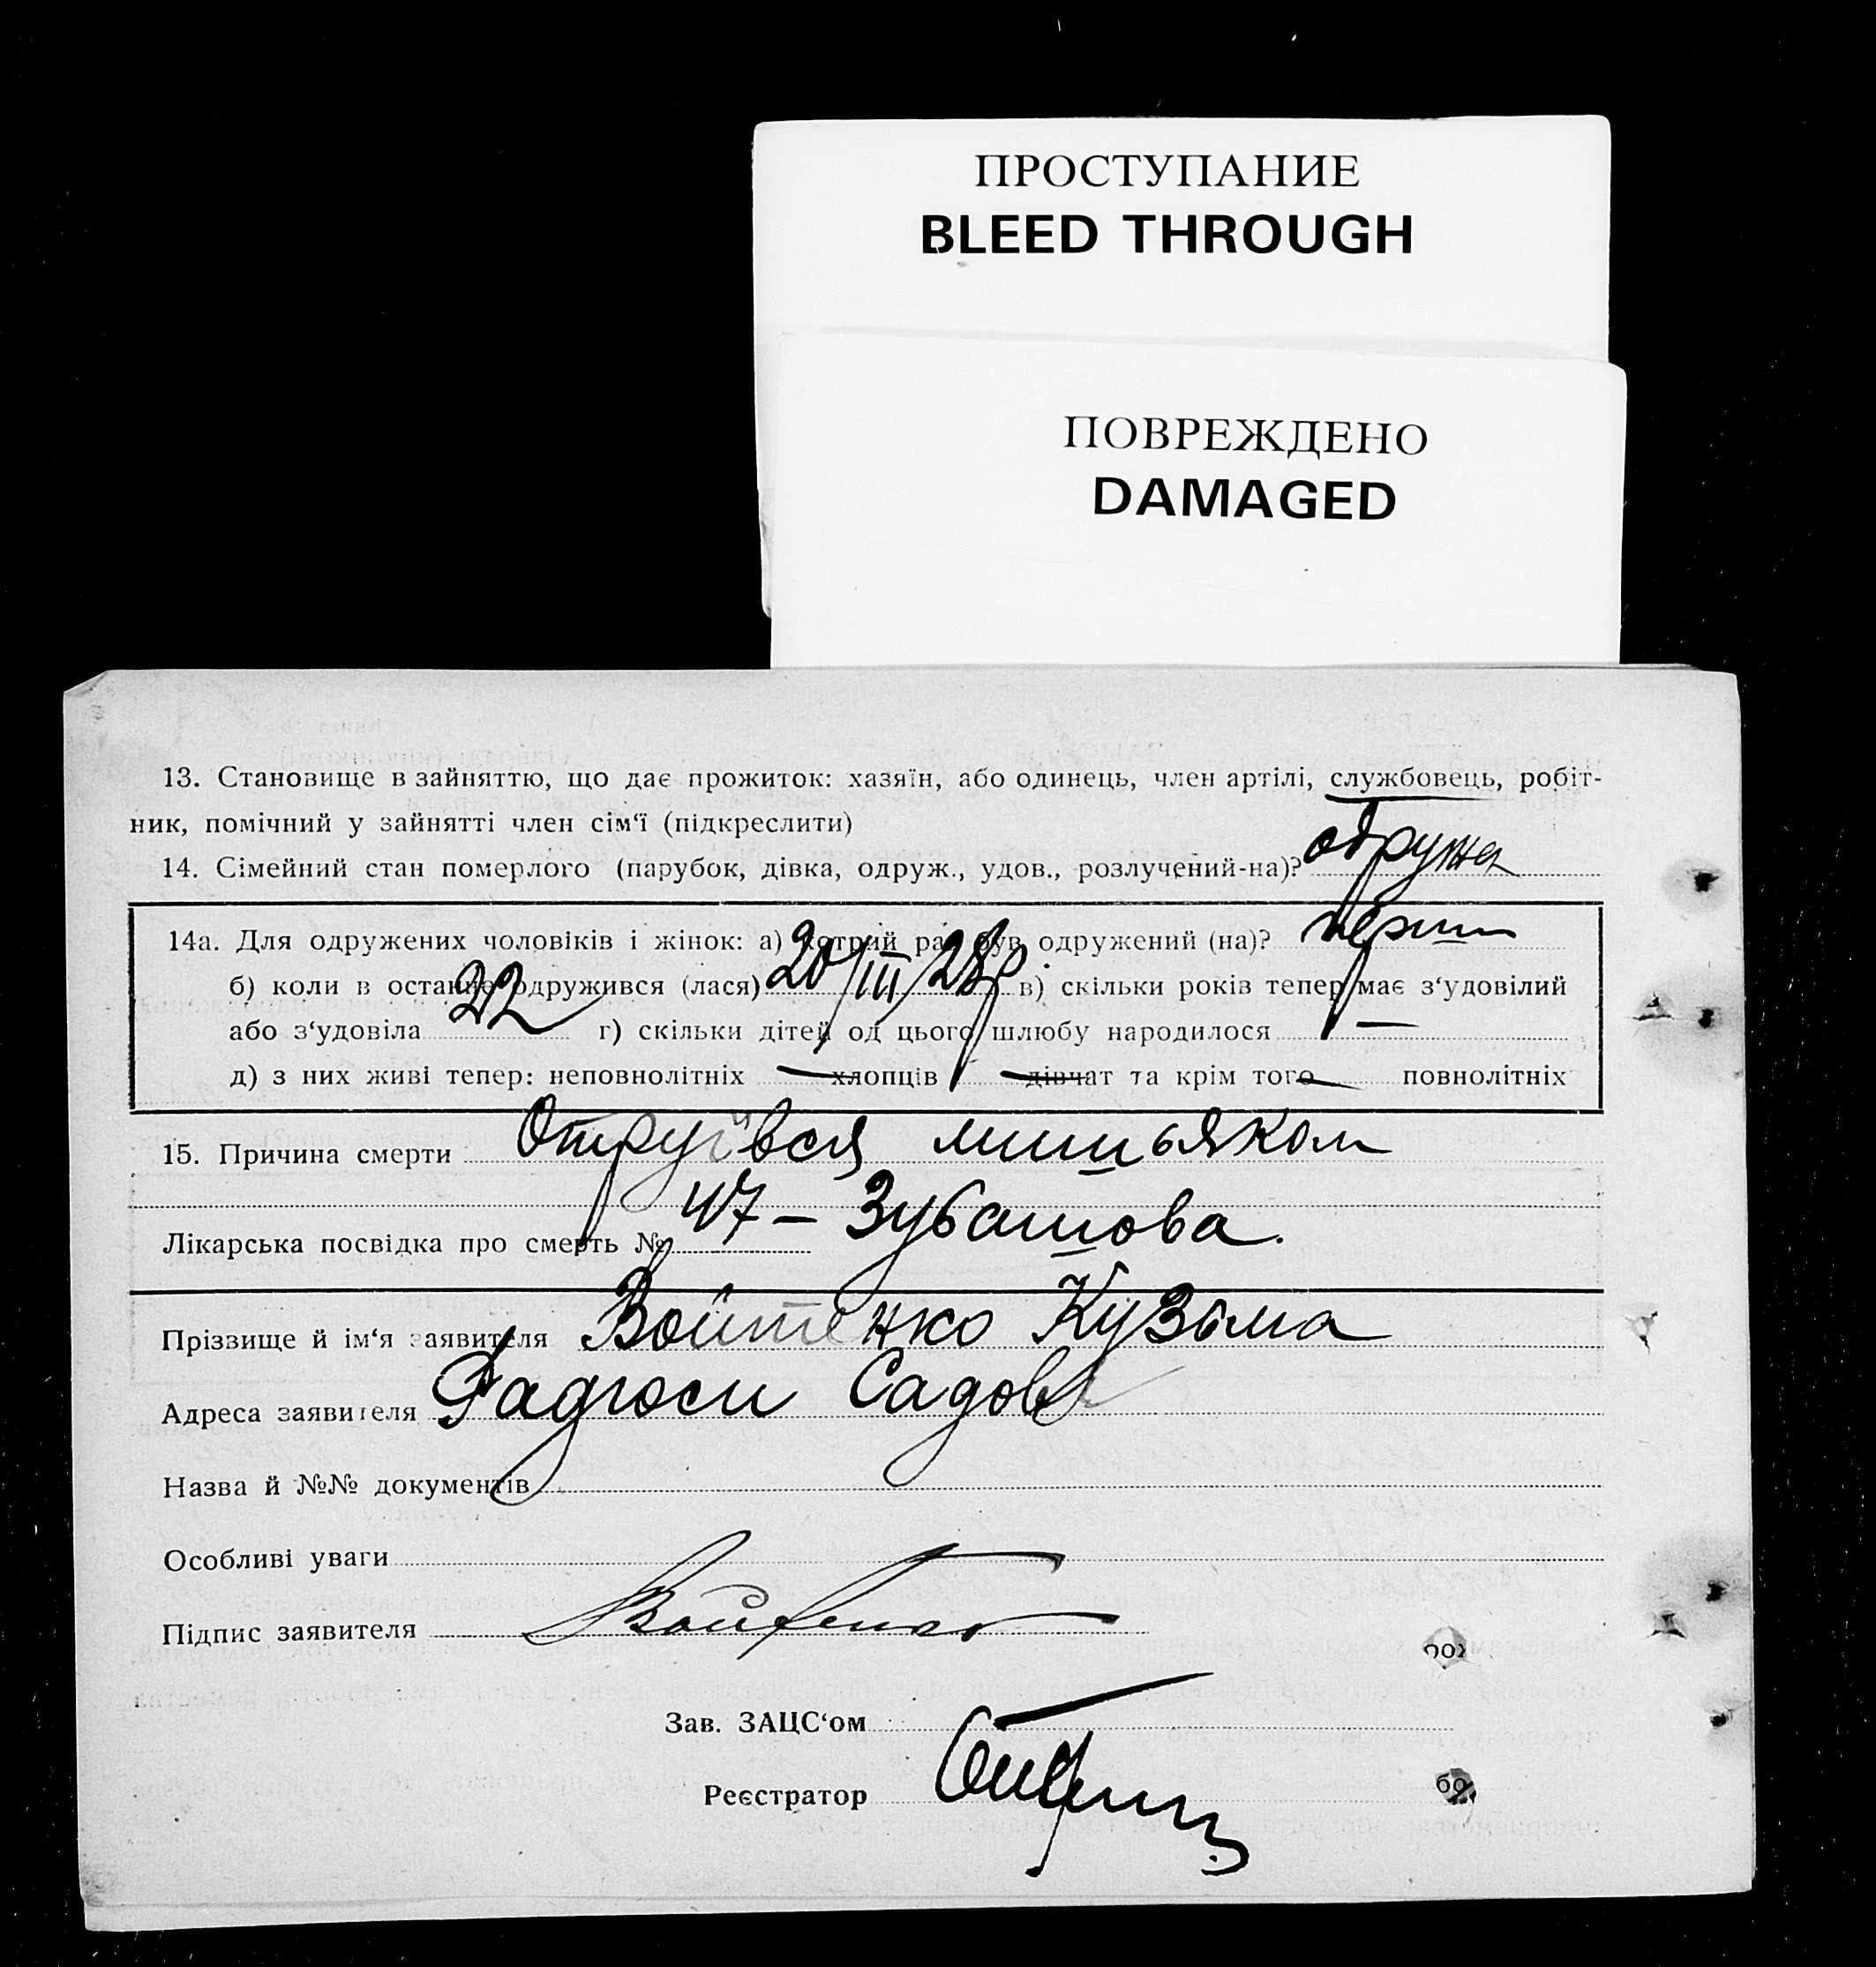 ПРОСТУПАНИЕ
BLEED THROUGH
ПОВРЕЖДЕНО
DAMAGED
13. Становище в зайняттю, що дає прожиток: хазяїн, або одинець, член артілі, службовець, робіт-
ник, помічний у зайнятті член сім‘ї (підкреслити)
14. Сімейний стан померлого (парубок, дівка, одруж., удов., розлучений-на)? одружен
14а. Для одружених чоловіків і жінок: а) котрий раз був одружений (на)? перший
б) коли в останнє одружився (лася) 20/III/28р. в) скільки років тепер має з‘удовілий
або з‘удовіла 22 г) скільки дітей од цього шлюбу народилося —
д) з них живі тепер: неповнолітніх — хлопців — дівчат та крім того — повнолітніх
15. Причина смерти Отруївся мишьяком
Лікарська посвідка про смерть № 47 – Зубашова.
Прізвище й ім‘я заявителя Войтенко Кузьма
Адреса заявителя Садова
Назва й №№ документів
Особливі уваги
Підпис заявителя Войтенко
Зав. ЗАЦС‘ом
Реєстратор